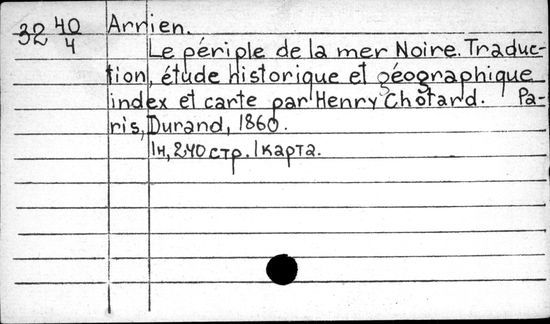 32 40/4 Arrien.
Le périple de la mer Noire. Traduc-
tion, étude historique et géographique
index et carte par Henry Chotard. Pa-
ris, Durand, 1860.
1н, 240 стр. 1 карта.